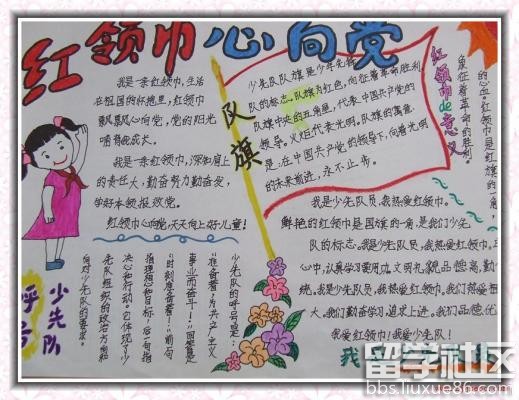 红领巾心向党
我是一条红领巾,生活
在祖国的怀抱里,红领巾
飘飘心向党,党的阳光
哺育我成长。
我是一条红领巾,深知肩上
的责任大,勤奋努力勤奋发,
学好本领报效党。
红领巾心向党,天天向上好儿童!
队旗
少先队队旗是少年先锋
队的标志。队旗为红色,向征着革命胜利
队旗中央的五角星,代表中国共产党的
领导。火炬代表光明。队旗的寓意
是:在中国共产党的领导下,向着光明
的未来前进,永不上步。
红领巾de意义
的心血。红领巾是红旗的一角,
象征着革命的胜利。
我是少先队员,我热爱红领巾。
鲜艳的红领巾是国旗的一角,是我们少先
队的标志。我是少先队员,我热爱红领巾。
心中,认真学习要用功,文明礼貌品德高,勤
统。我是少先队员,我热爱红领巾。我们热爱
大。我们勤奋学习,追求上进。我们品德优
我爱红领巾!我爱少先队!
少先队
呼号
少先队的呼号是:
"准备着:为共产主义
事业而奋斗!"回答是
"时刻准备着!"前句
指理想和目标,后一句指
决心和行动。它体现了少
先队组织的政治方向和
留学社区
bbs.liuxue86.com